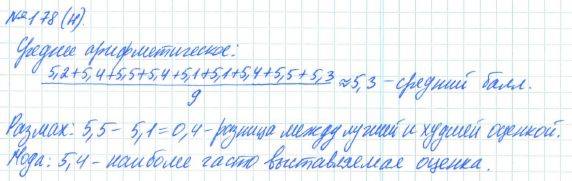 №178(н)
Среднее арифметическое:
5,2+5,4+5,5+5,4+5,1+5,1+5,4+5,5+5,3
9
≈5,3 – средний балл.
Размах: 5,5 – 5,1 = 0,4 – разница между лучшей и худшей оценкой.
Мода: 5,4 – наиболее часто выставляемая оценка.